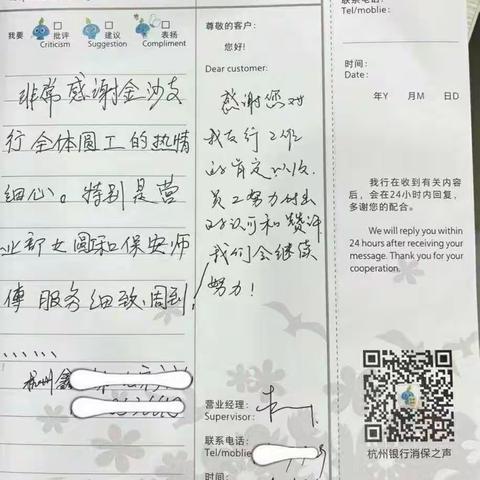 我要
批评
Criticism
建议
Suggestion
表扬
Compliment
非常感谢金沙支
行全体圆工的热情
细心。特别是营
业部女圆和保安师
傅服务细致、周到!
杭州鑫
尊敬的客户:
您好!
Dear customer:
感谢您对
我支行工作
的肯定以及
员工努力付出
的认可和赞许
我们会继续
努力!
营业经理:
Supervisor:
联系电话:
Tel/moblie:
时间:
联系电话:
Tel/moblie:
时间:
Date:
年Y 月M 日D
我行在收到有关内容
后,会在24小时内回复,
多谢您的配合。
We will reply you within
24 hours after receiving your
message. Thank you for your
cooperation.
杭州银行消保之声